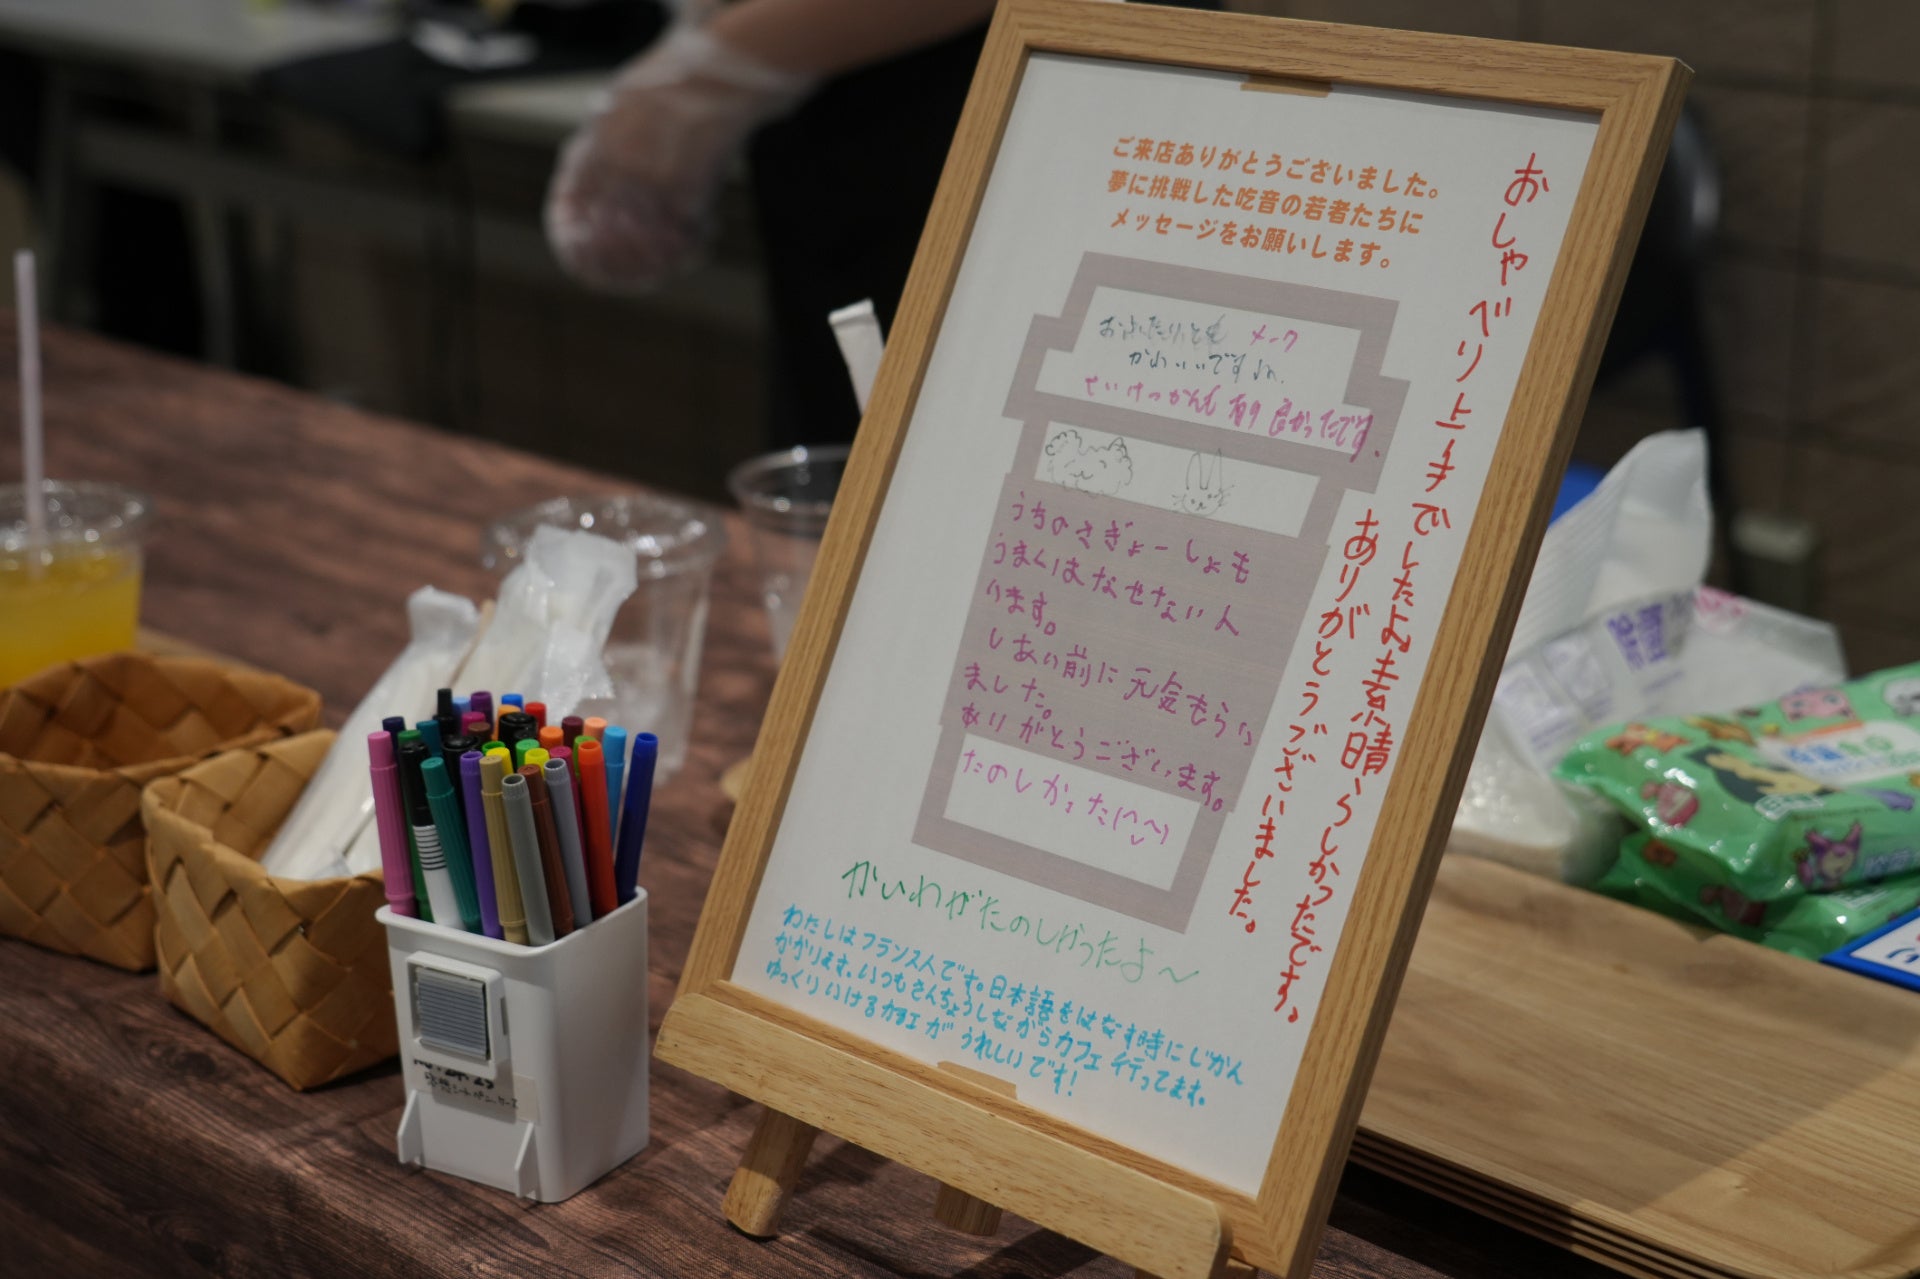 ご来店ありがとうございました。
夢に挑戦した吃音の若者たちに
メッセージをお願いします。
おしゃべり上手でしたよ素晴らしかったです。
ありがとうございました。
おふたりとも メーク
かわいいですね.
せいけつかんも 有り 良かったです.
うちのさぎょーしょも
うまくはなせない人
います。
しあい前に元気もらい
ました。
ありがとうございます。
たのしかった(^‿^)
かいわがたのしかったよ〜
わたしはフランス人です。日本語をはなす時にじかん
かかります.いつもきんちょうしながらカフェ行ってます.
ゆっくりいけるカフェが うれしいです!